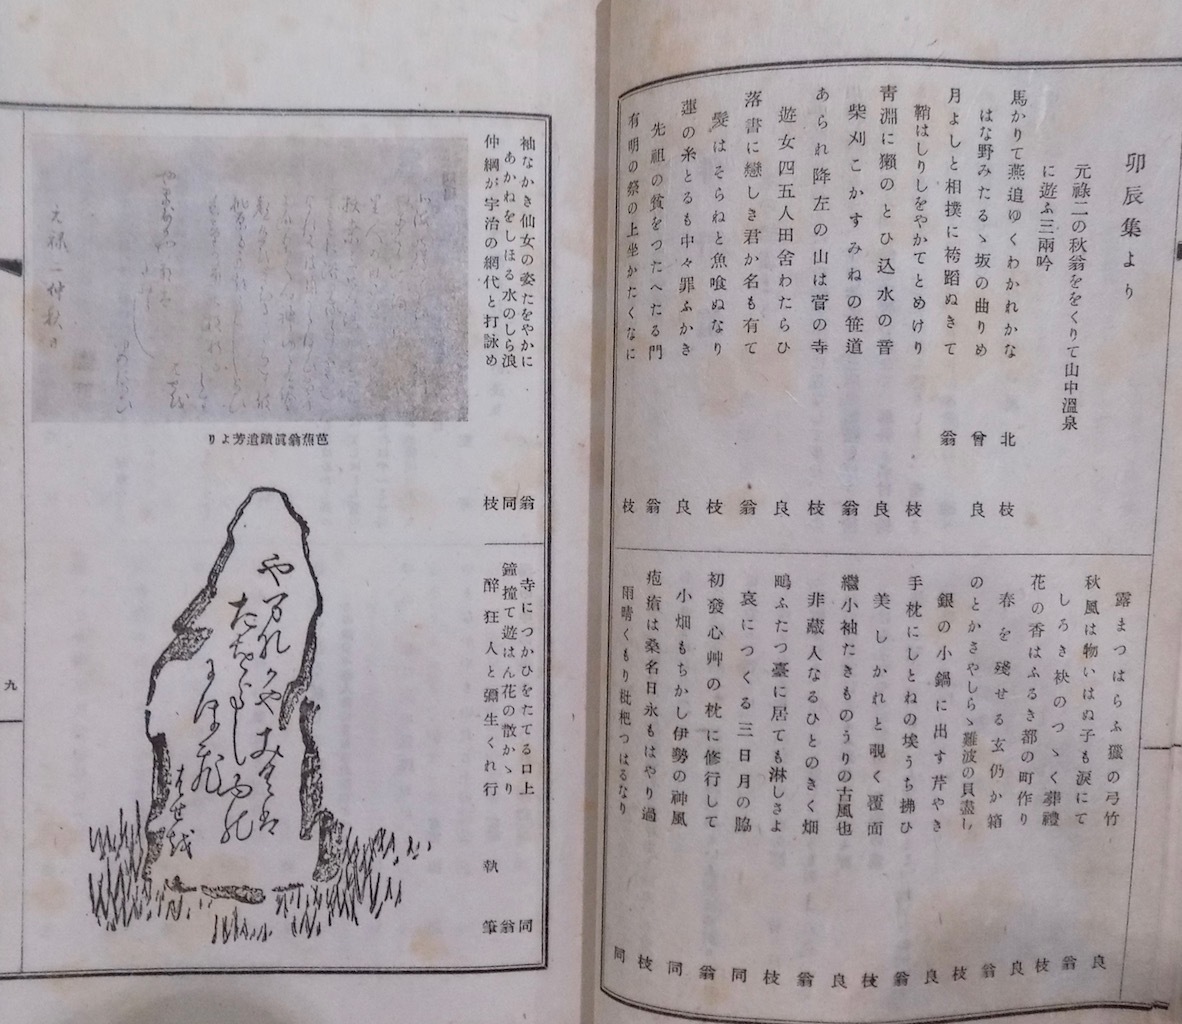 卯辰集より
元祿二の秋翁ををくりて山中溫泉
に遊ふ三兩吟
馬かりて燕追ゆくわかれかな 北枝
はな野みたるゝ坂の曲りめ 曾良
月よしと相撲に袴踏ぬきて 翁
鞘はしりしをやかてとめけり 枝
靑淵に獺のとひ込水の音 良
柴刈こかすみねの笹道 翁
あられ降左の山は菅の寺 枝
遊女四五人田舍わたらひ 良
落書に戀しき君か名も有て 翁
髮はそらねと魚喰ぬなり 枝
蓮の糸とるも中々罪ふかき 良
先祖の貧をつたへたる門 翁
有明の祭の上坐かたくなに 枝
露まつはらふ獵の弓竹 良
秋風は物いはぬ子も淚にて 翁
しろき袂のつゝく葬禮 枝
花の香はふるき都の町作り 良
春を殘せる玄仍か箱 翁
のとかさやしらゝ難波の貝盡し 枝
銀の小鍋に出す芹やき 良
手枕にしとねの埃うち拂ひ 翁
美しかれと覗く覆面 枝
繼小袖たきものうりの古風也 良
非藏人なるひとのきく畑 翁
鴫ふたつ臺に居ても淋しさよ 枝
哀につくる三日月の脇 同
初發心艸の枕に修行して 翁
小畑もちかし伊勢の神風 同
疱瘡は桑名日永もはやり過 枝
雨晴くもり枇杷つはるなり 同
袖なかき仙女の姿たをやかに 翁
あかねをしほる水のしら浪 同
仲綱が宇治の網代と打詠め 枝
寺につかひをたてる口上 同
鐘撞て遊はん花の散かゝり 翁
醉狂人と彌生くれ行 執筆
芭蕉翁眞蹟遺芳より
はせを
九